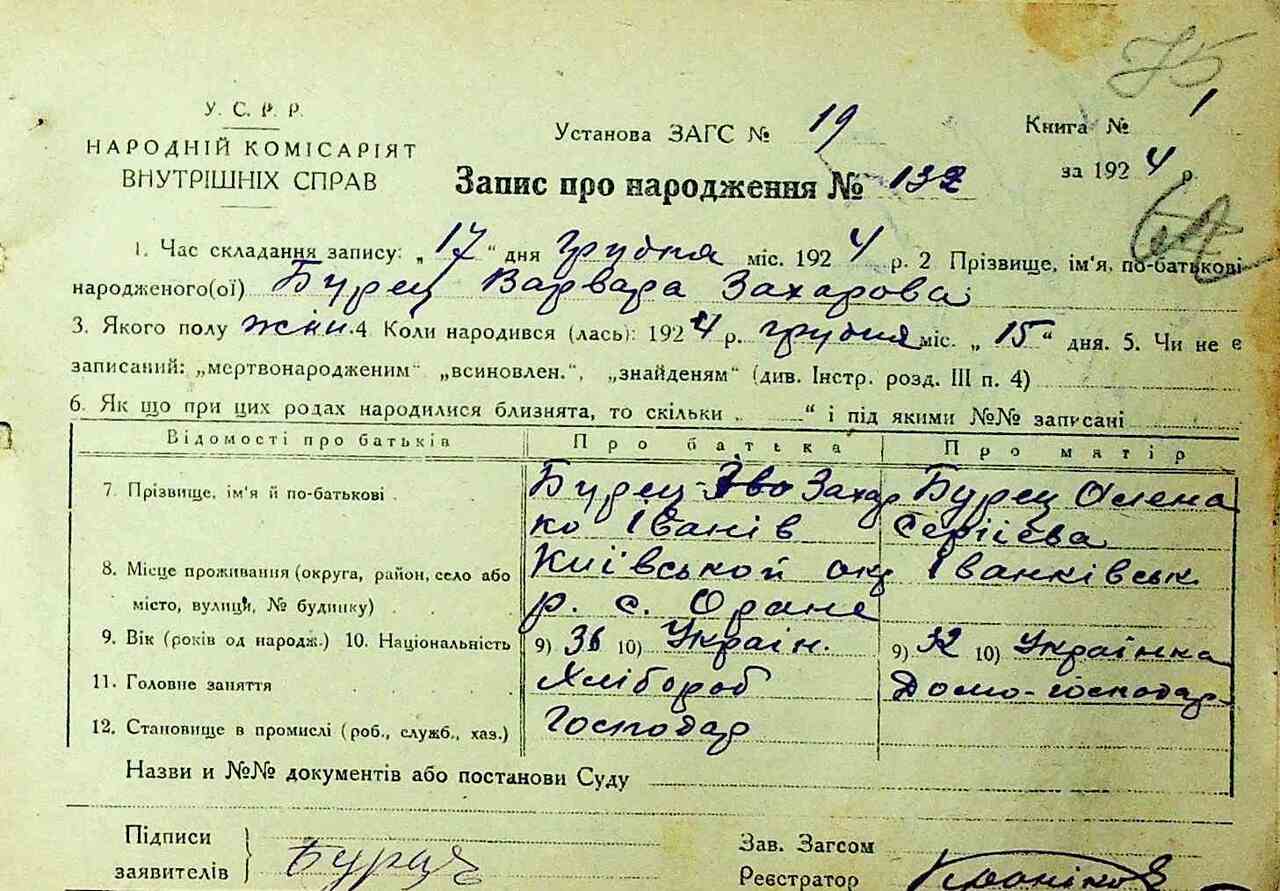 У. С. Р. Р.
НАРОДНІЙ КОМІСАРІЯТ
ВНУТРІШНІХ СПРАВ
Установа ЗАГС № 19
Книга № 1
за 1924 р.
Запис про народження № 132
1. Час складання запису: „17“ дня грудня міс. 1924 р. 2 Прізвище, ім'я, по-батькові
народженого(ої) Бурец Варвара Захарова
3. Якого полу жін. 4 Коли народився (лась): 1924 р. грудня міс. „15“ дня. 5. Чи не є
записаний: „мертвонародженим“ „всиновлен.“, „знайденям“ (див. Інстр. розд. III п. 4)
6. Як що при цих родах народилися близнята, то скільки “ і під якими №№ записані
Відомості про батьків Про батька Про матір
7. Прізвище, ім'я й по-батькові Бурец Захар Бурец Олена
ко Іванів Сергіева
8. Місце проживання (округа, район, село або Київськой окр Іванківськ
місто, вулиця, № будинку) р. с. Оране
9. Вік (років од народж.) 10. Національність 9) 36 10) Українн. 9) 32 10) Українка
11. Головне заняття Хлібороб Домо-господар
12. Становище в промислі (роб., служб., хаз.) Господар
Назви и №№ документів або постанови Суду
Підписи
заявителів Бурец
Зав. Загсом
Реєстратор